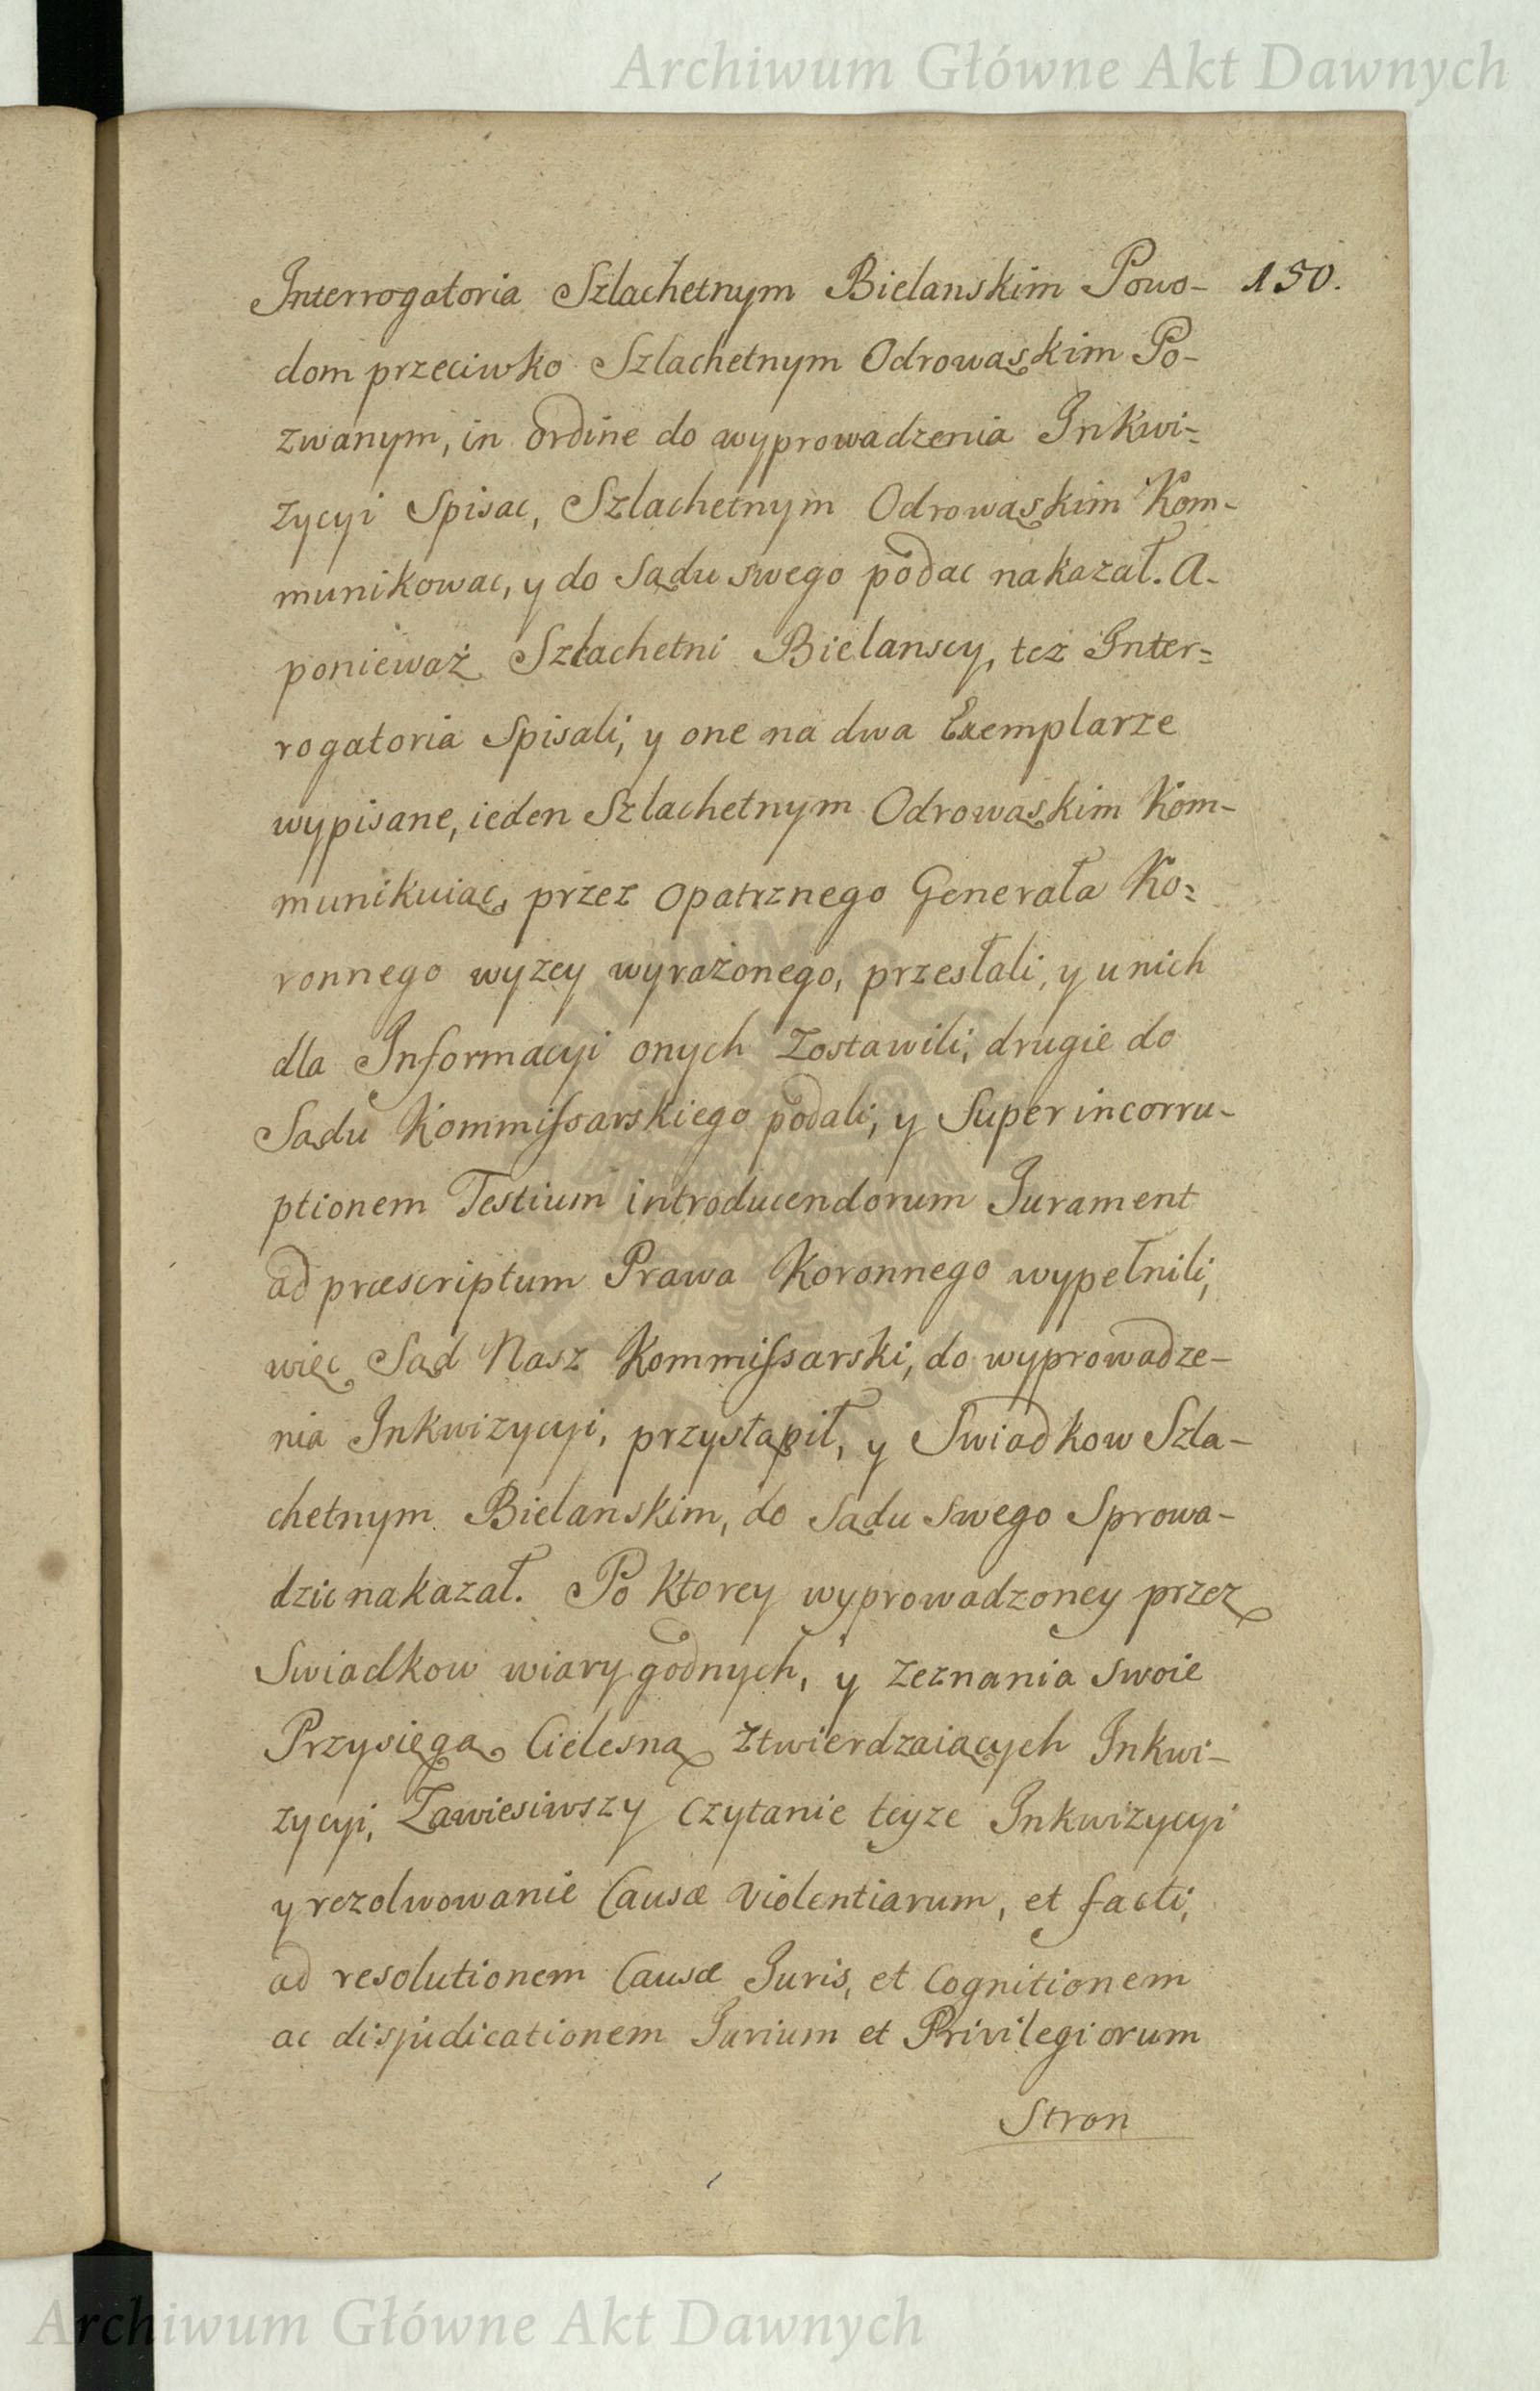 Archiwum Główne Akt Dawnych
Interrogatoria Szlachetnym Bielanskim Powo- 150.
dom przeciwko Szlachetnym Odrowąskim Po-
zwanym, in ordine do wyprowadzenia Inkwi=
zycyi Spisac, Szlachetnym Odrowąskim Kom-
munikowac, y do Sądu swego podac nakazał. A-
ponieważ Szlachetni Bielanscy, tez Inter=
rogatoria Spisali, y one na dwa Exemplarze
wypisane, ieden Szlachetnym Odrowąskim Kom-
munikuiąc, przez Opatrznego Generała Ko=
ronnego wyzey wyrażonego, przesłali, y u nich
dla Informacyi onych zostawili, drugie do
Sądu Kommissarskiego podali, y Super incorru-
ptionem Testium introducendorum Jurament
ad præscriptum Prawa Koronnego wypełnili,
więc Sąd Nasz Kommissarski, do wyprowadze-
nia Inkwizycyi, przystąpił, y Swiadkow Szla-
chetnym Bielanskim, do Sądu swego Sprowa-
dzic nakazał. Po ktorey wyprowadzoney przez
Swiadkow wiary godnych, y zeznania swoie
Przysięgą Cielesną ztwierdzaiących Inkwi-
zycyi, Zawiesiwszy czytanie teyze Inkwizycyi
y rezolwowanie Causæ violentiarum, et facti,
ad resolutionem Causæ Juris, et Cognitionem
ac disjudicationem Jurium et Privilegiorum
Stron
Archiwum Główne Akt Dawnych